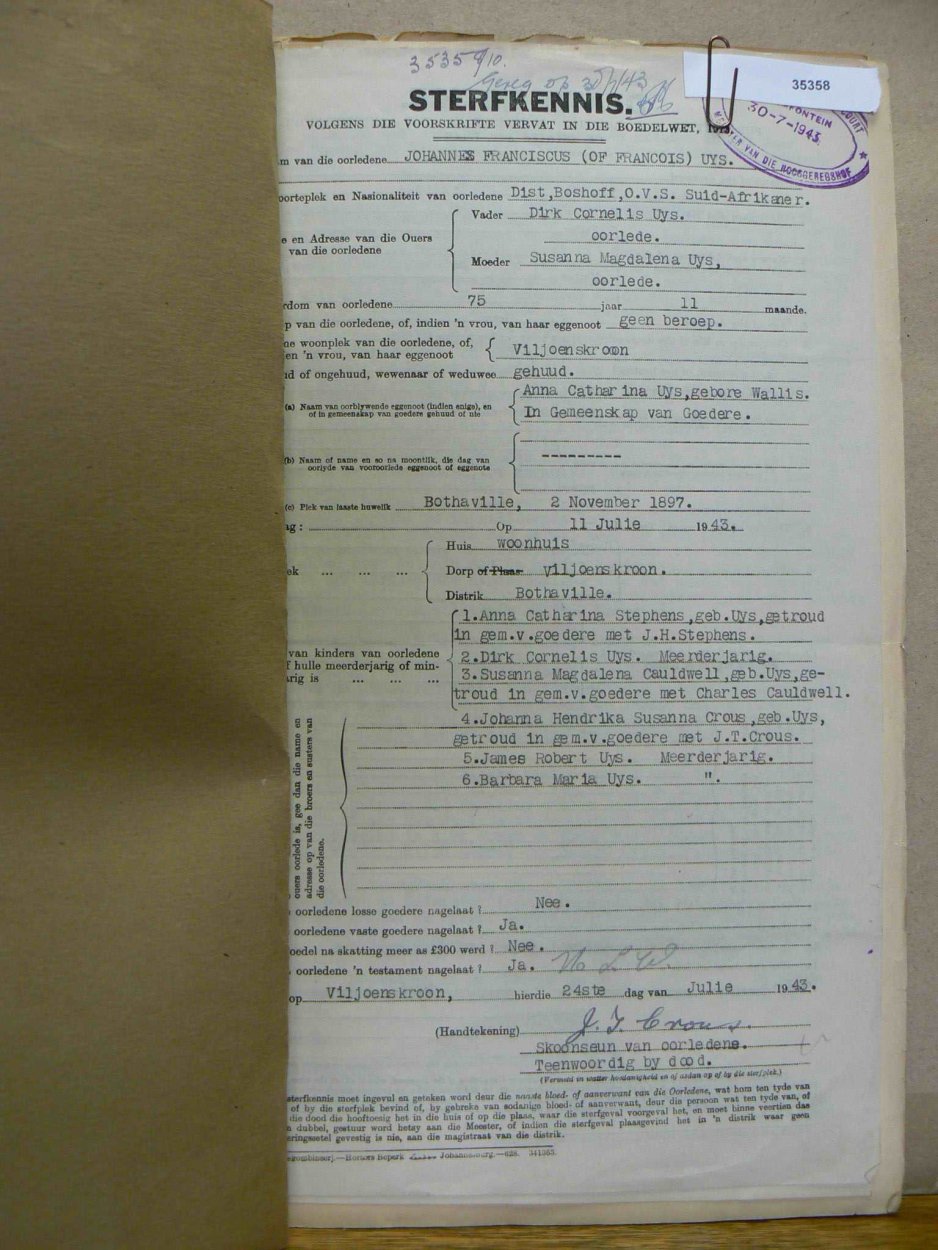 35358/10.
Gereg op 30/7/43
35358
STERFKENNIS.
VOLGENS DIE VOORSKRIFTE VERVAT IN DIE BOEDELWET,
30-7-1943
VAN DIE HOOGGEREGSHOF
m van die oorledene JOHANNES FRANCISCUS (OF FRANCOIS) UYS.
oorteplek en Nasionaliteit van oorledene Dist,Boshoff,O.V.S. Suid-Afrikaner.
Vader Dirk Cornelis Uys.
e en Adresse van die Ouers van die oorledene
oorlede.
Moeder Susanna Magdalena Uys,
oorlede.
rdom van oorledene 75 jaar 11 maande.
p van die oorledene, of, indien 'n vrou, van haar eggenoot geen beroep.
ne woonplek van die oorledene, of,
en 'n vrou, van haar eggenoot Viljoenskroon
d of ongehuud, wewenaar of weduwee gehuud.
(a) Naam van oorblywende eggenoot (indien enige), en Anna Catharina Uys,gebore Wallis.
of in gemeenskap van goedere gehuud of nie In Gemeenskap van Goedere.
(b) Naam of name en so na moontlik, die dag van
oorlyde van vooroorlede eggenoot of eggenote ---------
(c) Plek van laaste huwelik Bothaville, 2 November 1897.
ag: Op 11 Julie 1943.
Huis woonhuis
ek ... ... ... Dorp of Plaas viljoenskroon.
Distrik Bothaville.
1.Anna Catharina Stephens,geb.Uys,getroud
in gem.v.goedere met J.H.Stephens.
van kinders van oorledene 2.Dirk Cornelis Uys. Meerderjarig.
f hulle meerderjarig of min- 3.Susanna Magdalena Cauldwell,geb.Uys,ge-
rig is ... ... ... troud in gem.v.goedere met Charles Cauldwell.
4.Johanna Hendrika Susanna Crous,geb.Uys,
getroud in gem.v.goedere met J.T.Crous.
5.James Robert Uys. Meerderjarig.
6.Barbara Maria Uys. ".
ouers oorlede is, gee dan die name en
adresse op van die broers en susters van
die oorledene.
oorledene losse goedere nagelaat? Nee.
oorledene vaste goedere nagelaat? Ja.
oedel na skatting meer as £300 werd? Nee.
oorledene 'n testament nagelaat? Ja.
op Viljoenskroon, hierdie 24ste dag van Julie 1943.
(Handtekening) J. T. Crous.
Skoonseun van oorledene.
Teenwoordig by dood.
(Vermeld in watter hoedanigheid en of aedan op of by die sterfplek.)
sterfkennis moet ingevul en geteken word deur die naaste bloed- of aanverwant van die Oorledene, wat hom ten tyde van
of by die sterfplek bevind of, by gebreke van sodanige bloed- of aanverwant, deur die persoon wat ten tyde van, of
die dood die hooftoesig het in die huis of op die plaas, waar die sterfgeval voorgeval het, en moet binne veertien das
n dubbel, gestuur word hetsy aan die Meester, of indien die sterfgeval plaasgevind het in 'n distrik waar geen
eringssetel gevestig is nie, aan die magistraat van die distrik.
Hortors Beperk Johannesburg.—628. 341363.